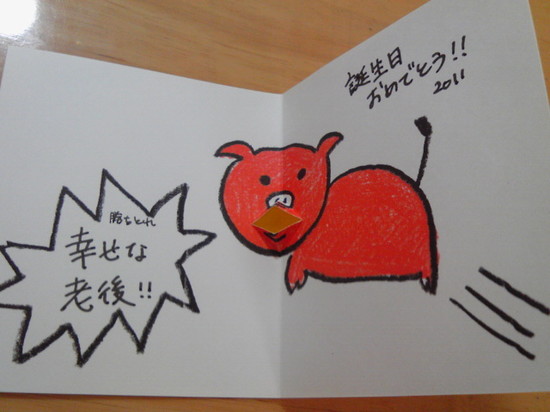 誕生日
おめでとう!!
2011
勝ちとれ
幸せな
老後!!